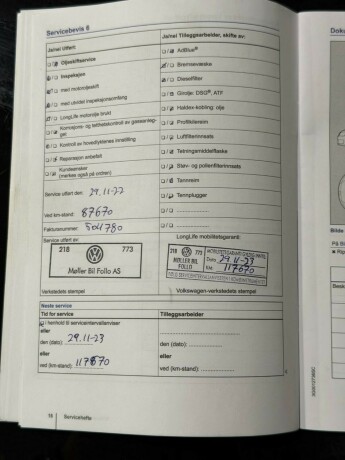 Servicebevis 6
Ja/nei Utført:
Ja/nei Tilleggsarbeider, skiftes av:
Oljeskiftservice
AdBlue®
Inspeksjon
Bremsevæske
med motoroljeskift
Dieselfilter
med utvidet inspeksjonsomfang
Girolje: DSG®, ATF
LongLife motorolje brukt
Haldex-kobling: olje
Korrosjons- og tetthetskontroll av gassanlegget
Profilkilerem
Kontroll av hovedlyktenes innstilling
Luftfilterinnsats
Reparasjon anbefalt
Tetningsmiddelflaske
Kundeønsker
(merkes også på ordren)
Støv- og pollenfilterinnsats
Tannreim
Service utført den: 29.11-22
Termplugger
Ved km-stand: 87670
Fakturanummer: 504780
Service utført av
LongLife mobilitetsgaranti:
218 773
Møller Bil Follo AS
218 773
MØLLER BIL
FOLLO
Dato 29.11-23
KM. 117670
Verkstedets stempel
Volkswagen-verkstedets stempel
Neste service
Tid for service
Tilleggsarbeider
i henhold til serviceintervallanviser
eller
eller
den (dato): 29.11-23
den (dato):
eller
eller
ved (km-stand): 117670
ved (km-stand):
18 Servicehefte